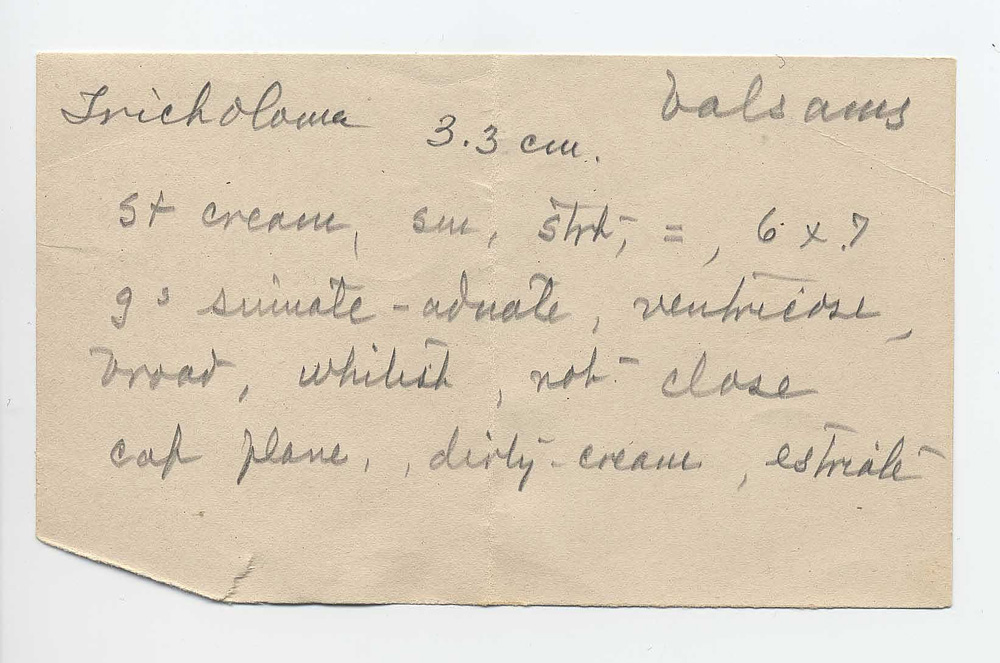 Tricholoma 3.3 cm. balsams
St cream, sm, strt, =, 6 x .7
gs sinuate-adnate, ventricose,
broad, whitish, not close
cap plane, dirty-cream, estriate